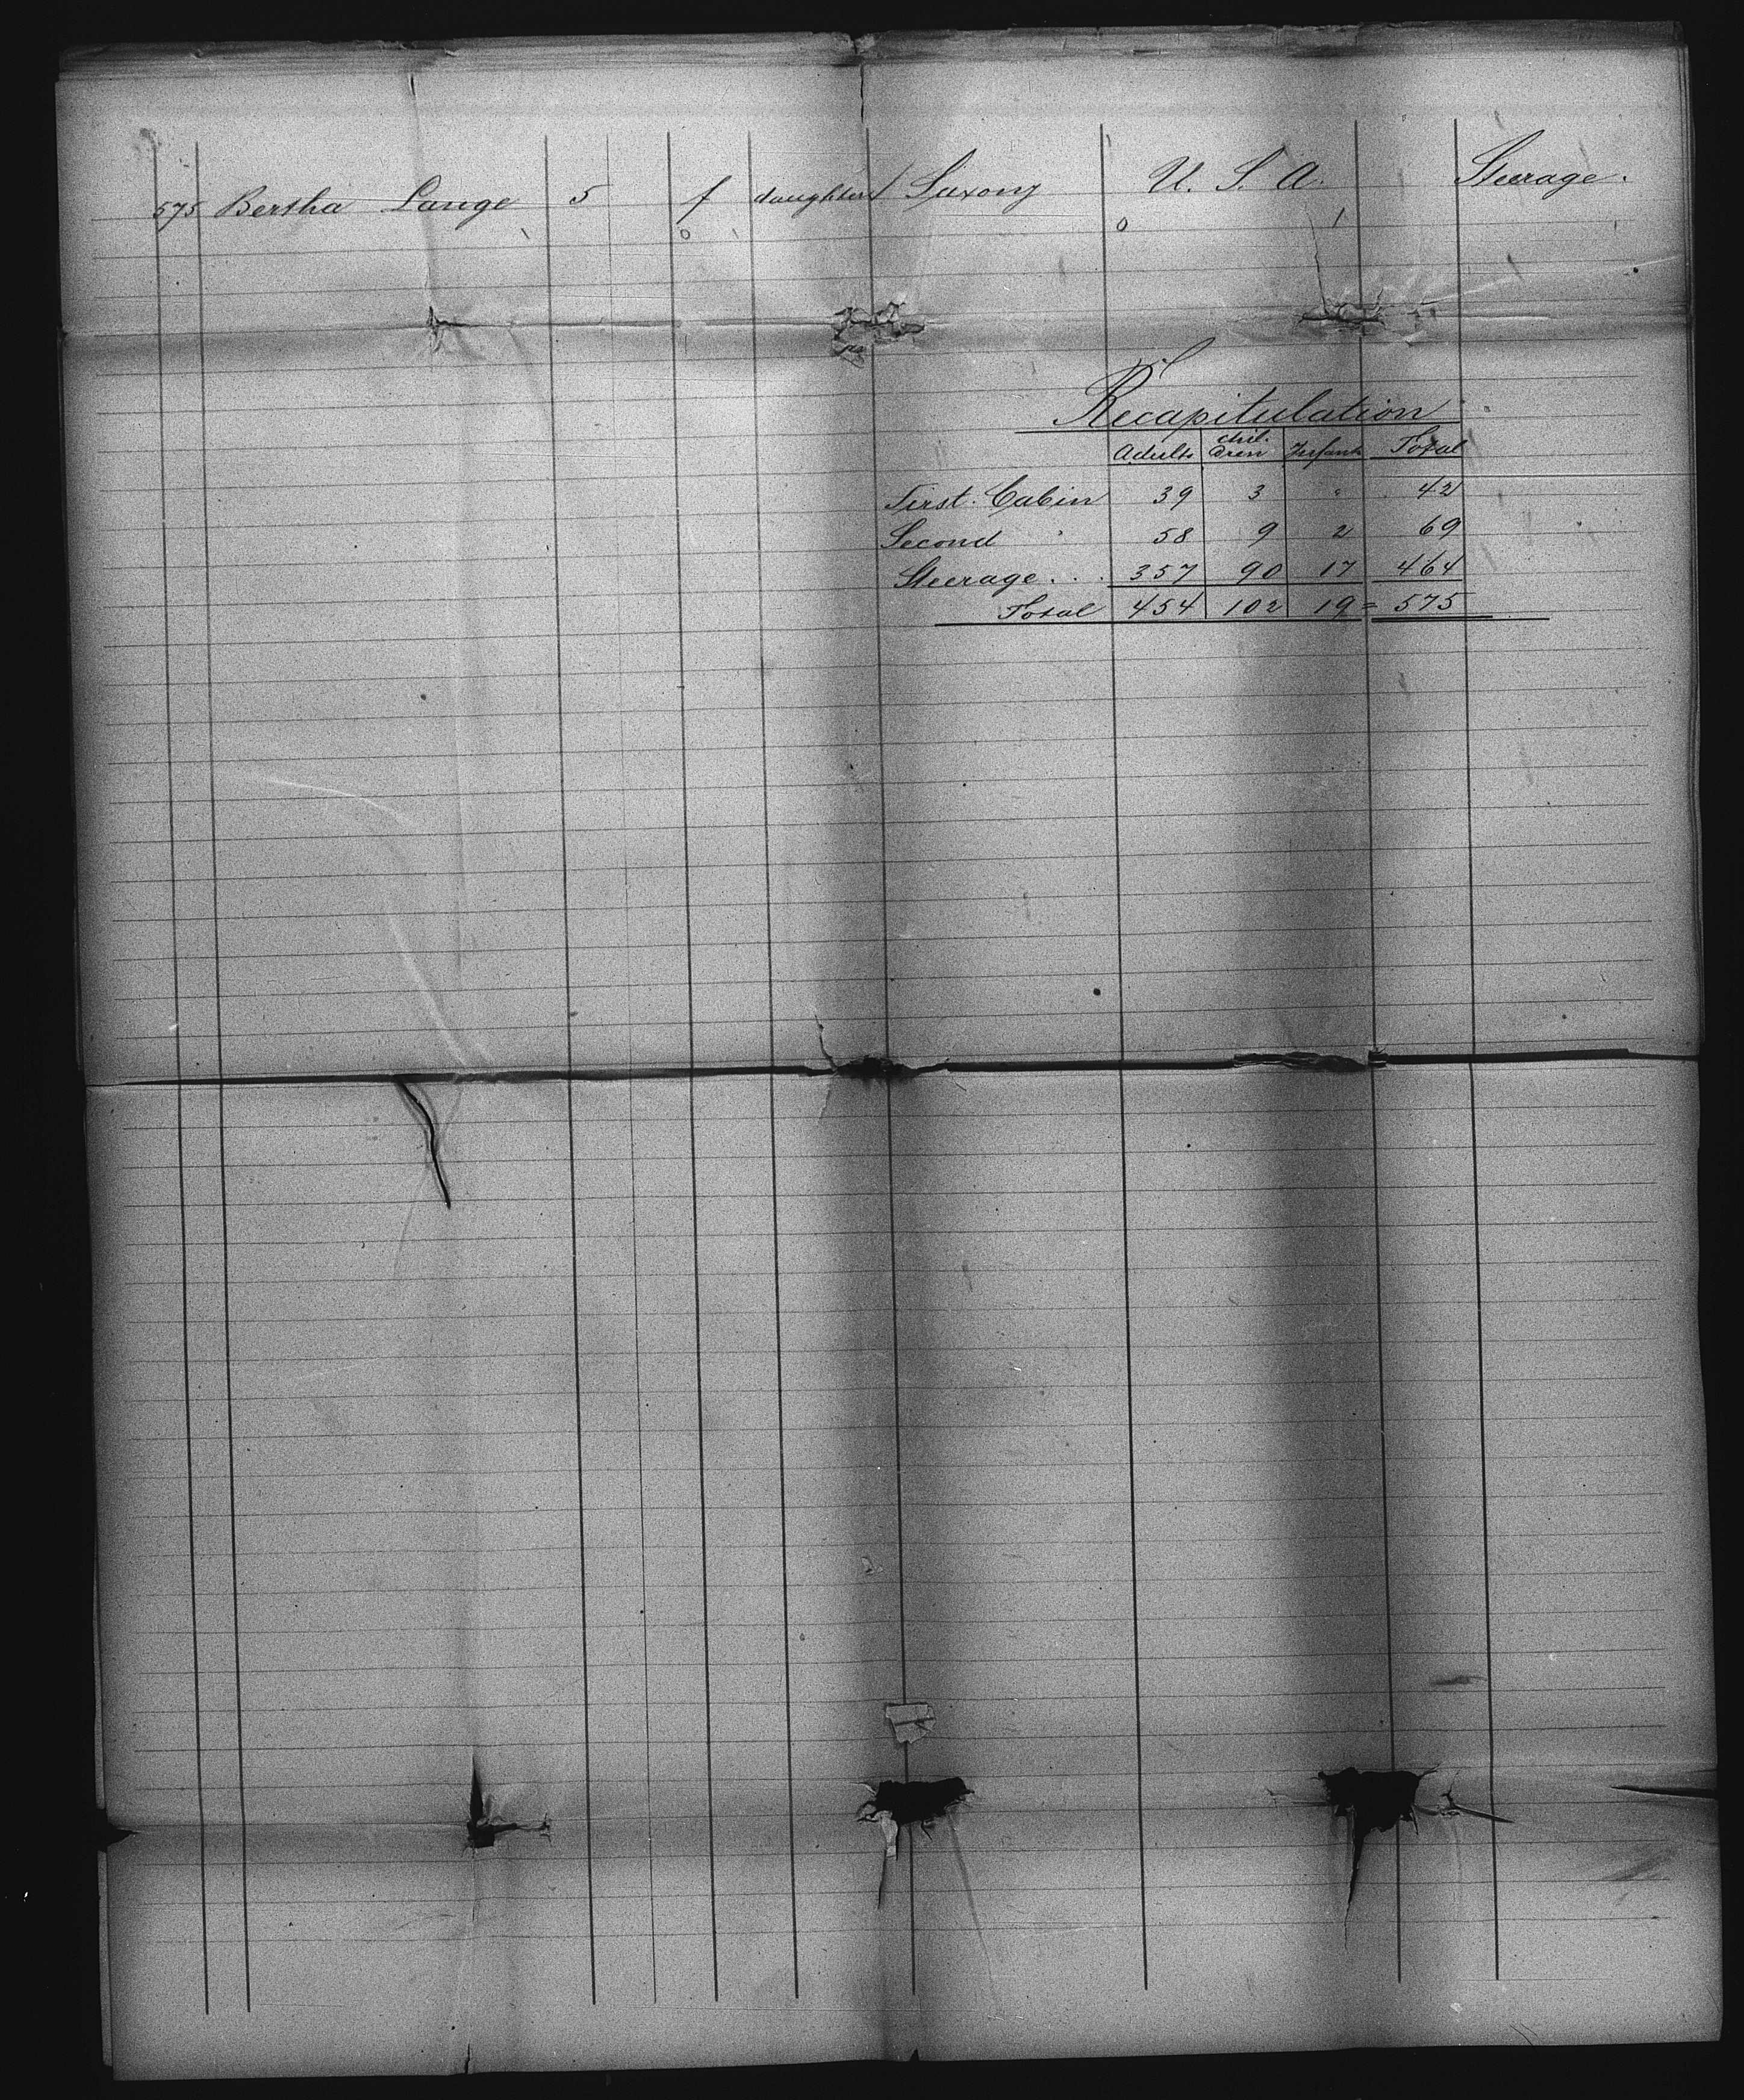 575 Bertha Lange 5 f daughter Saxony U. S. A. Steerage.
Recapitulation
Adults Chil-dren Infants Total
First Cabin 39 3 " 42
Second " 58 9 2 69
Steerage . . . 357 90 17 464
Total 454 102 19 = 575